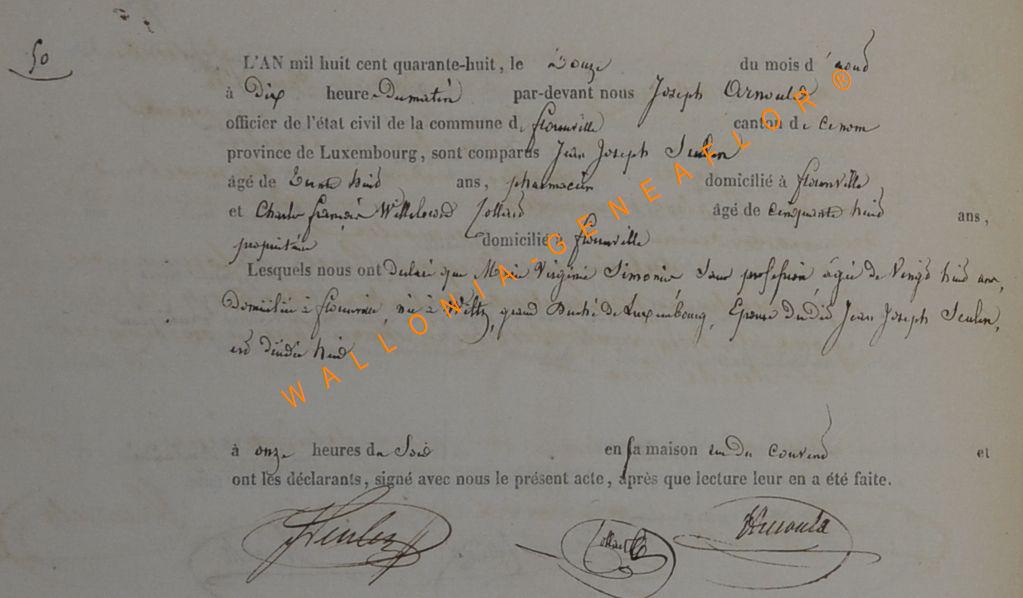 50
L'AN mil huit cent quarante-huit, le Douze du mois d'août
à Dix heures Du matin par-devant nous Joseph Arnould
officier de l'état civil de la commune de florenville canton de
province de Luxembourg, sont comparus Jean Joseph
âgé de Trente huit ans, pharmacien domicilié à florenville
et Charles françois Willebrord Collard âgé de cinquante huit ans,
propriétaire domicilié à florenville
Lesquels nous ont Déclaré que Marie Virginie Simonin, Sans profession, âgée de Vingt huit ans,
Domiciliée à florenville, née à Wiltz, grand Duché de Luxembourg, Epouse Dudit Jean Joseph
est décédée hier
à onze heures du Soir en sa maison rue du couvent et
ont les déclarants, signé avec nous le présent acte, après que lecture leur en a été faite.
Collard Arnould
WALLONIA-GENEAFLOR®